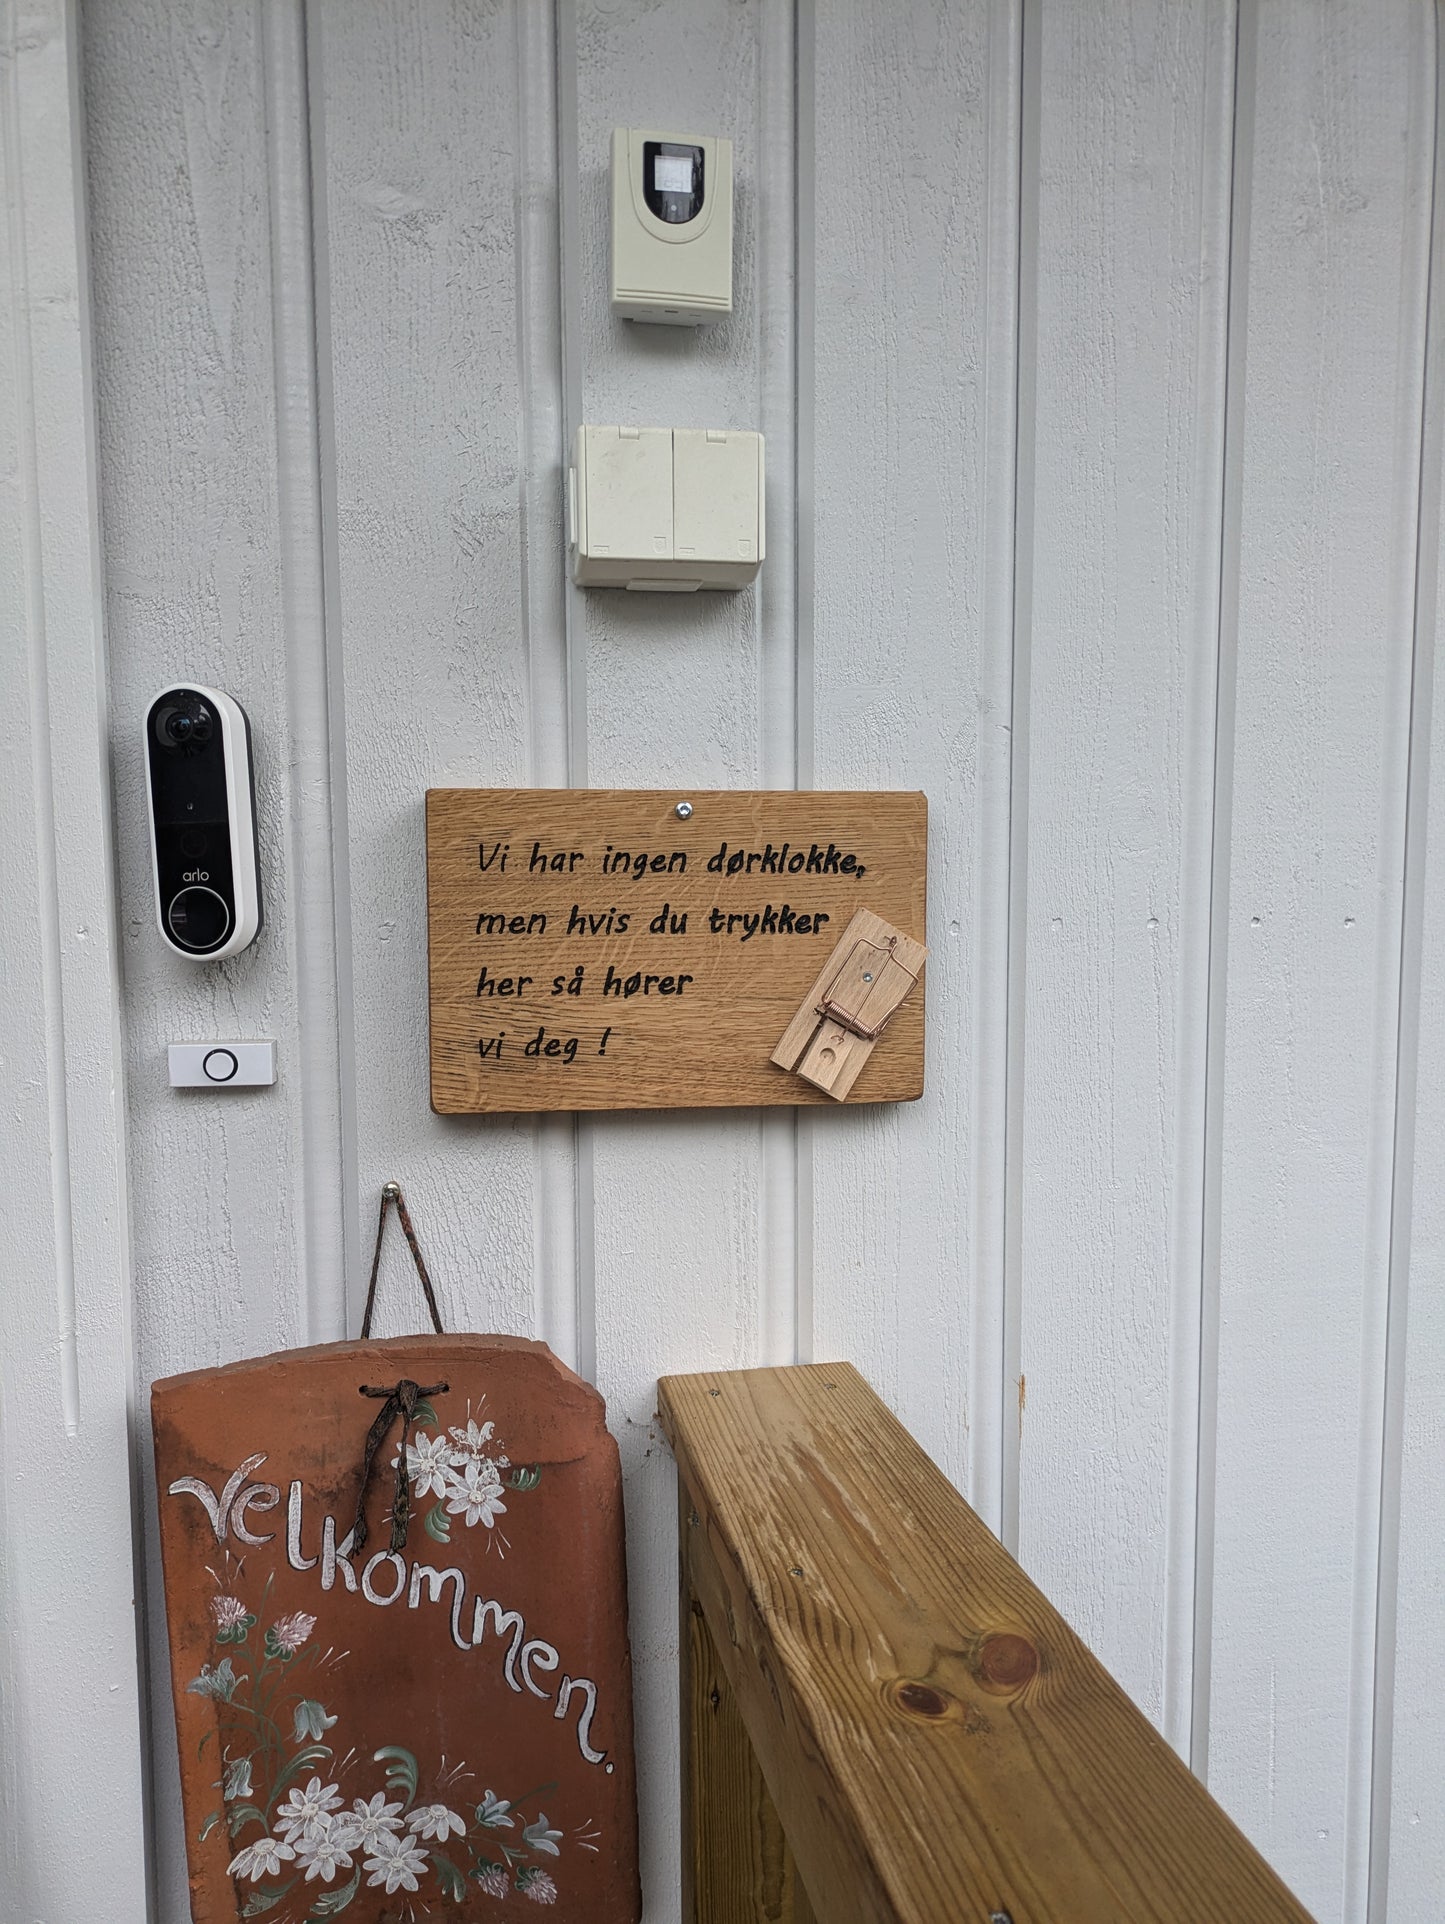 arlo
Vi har ingen dørklokke,
men hvis du trykker
her så hører
vi deg !
Velkommen.